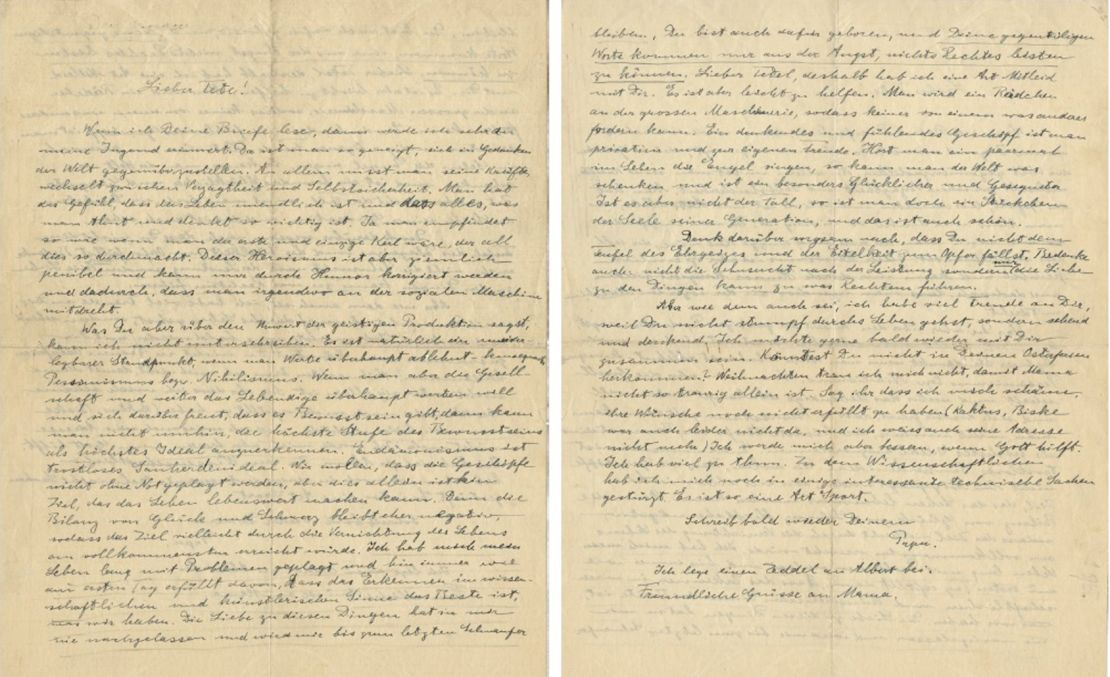 Lieber Tete!
Wenn ich Deine Briefe lese, dann werde ich sehr an
meine Jugend erinnert. Da ist man so geneigt, sich in Gedanken
der Welt gegenüberzustellen. An allem misst man seine Kräfte,
wechselt zwischen Verzagtheit und Selbstsicherheit. Man hat
das Gefühl, dass das Leben unendlich ist und dass alles, was
man thut und denkt so wichtig ist. Ja man empfindet
so wie wenn man der erste und einzige Kerl wäre, der all
dies so durchmacht. Dieser Heroismus ist aber ziemlich
penibel und kann nur durch Humor korigiert werden
und dadurch, dass man irgendwo an der sozialen Maschine
mitdreht.
Was Du aber über den Unwert der geistigen Produktion sagst,
kann ich nicht unterschreiben. Es ist natürlich der
Standpunkt, wenn man Werte überhaupt ablehnt
Pessimismus bezw. Nihilismus. Wenn man aber die Gesell-
schaft und weiter das Lebendige überhaupt werten will
und sich darüber freut, dass es Bewusstsein gibt, dann kann
man nicht umhin, die höchste Stufe des Bewusstseins
als höchstes Ideal anzuerkennen. Eudämonismus ist
trostloses Sauherdenideal. Wir wollen, dass die Geschöpfe
nicht ohne Not geplagt werden, aber dies allein ist kein
Ziel, das das Leben lebenswert machen kann. Denn die
Bilanz von Glück und Schmerz bleibt eher negativ,
sodass das Ziel vielleicht durch die Vernichtung des Lebens
am vollkommensten erreicht würde. Ich hab mich mein
Leben lang mit Problemen geplagt und bin immer wie
am ersten Tag erfüllt davon, dass das Erkennen im wissen-
schaftlichen und künstlerischen Sinne das Beste ist,
was wir haben. Die Liebe zu diesen Dingen hat in mir
nie nachgelassen und wird mir bis zum letzten Schnaufer
bleiben. Du bist auch dafür geboren, und Deine gegenteiligen
Worte kommen nur aus der Angst, nichts Rechtes leisten
zu können. Lieber Tetel, deshalb hab ich eine Art Mitleid
mit Dir. Es ist aber leicht zu helfen. Man wird ein Rädchen
an der grossen Maschinerie, sodass keiner von einem was anders
fordern kann. Ein denkendes und fühlendes Geschöpf ist man
privatim und zur eigenen Freude. Hört man ein paarmal
im Leben die Engel singen, so kann man der Welt was
schenken und ist ein besonders Glücklicher und Gesegneter
Ist es aber nicht der Fall, so ist man doch ein Stückchen
der Seele seiner Generation, und das ist auch schön.
Denk darüber sorgsam nach, dass Du nicht dem
Teufel des Ehrgeizes und der Eitelkeit zum Opfer fällst. Bedenke
auch: nicht die Sehnsucht nach der Leistung sondern nur die Liebe
zu den Dingen kann zu was Rechtem führen.
Aber wie dem auch sei, ich habe viel Freude an Dir,
weil Du nicht stumpf durchs Leben gehst, sondern sehend
und denkend. Ich möchte gerne bald wieder mit Dir
zusammen sein. Könntest Du nicht in Deinen Osterferien
herkommen? Weihnachten trau ich mich nicht, damit Mama
nicht so traurig allein ist. Sag ihr dass ich mich schäme,
ihre Wünsche noch nicht erfüllt zu haben (Kaktus,
war auch leider nicht da, und ich weiss auch seine Adresse
nicht mehr) Ich werde mich aber bessern, wenn Gott hilft.
Ich hab viel zu thun. Zu dem Wissenschaftlichen
hab ich mich noch in einige interessante technische Sachen
gestürzt. Es ist so eine Art Sport.
Schreib bald wieder Deinem
Papa.
Ich lege einen Zeddel an Albert bei.
Freundliche Grüsse an Mama.